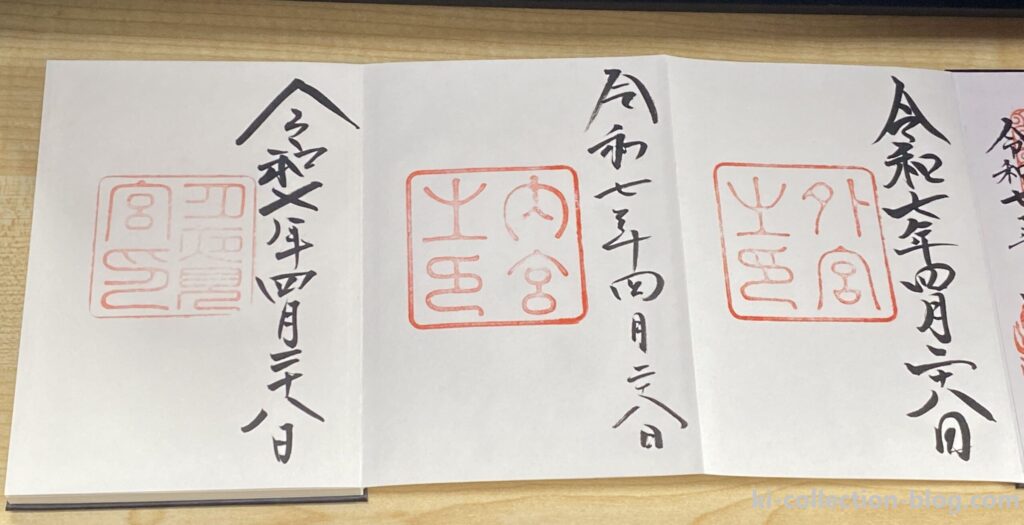 令和七年
令和七年四月二十八日
外宮
之印
令和七年四月二十八日
内宮
之印
令和七年四月二十八日
月夜見
宮印
ki-collection-blog.com